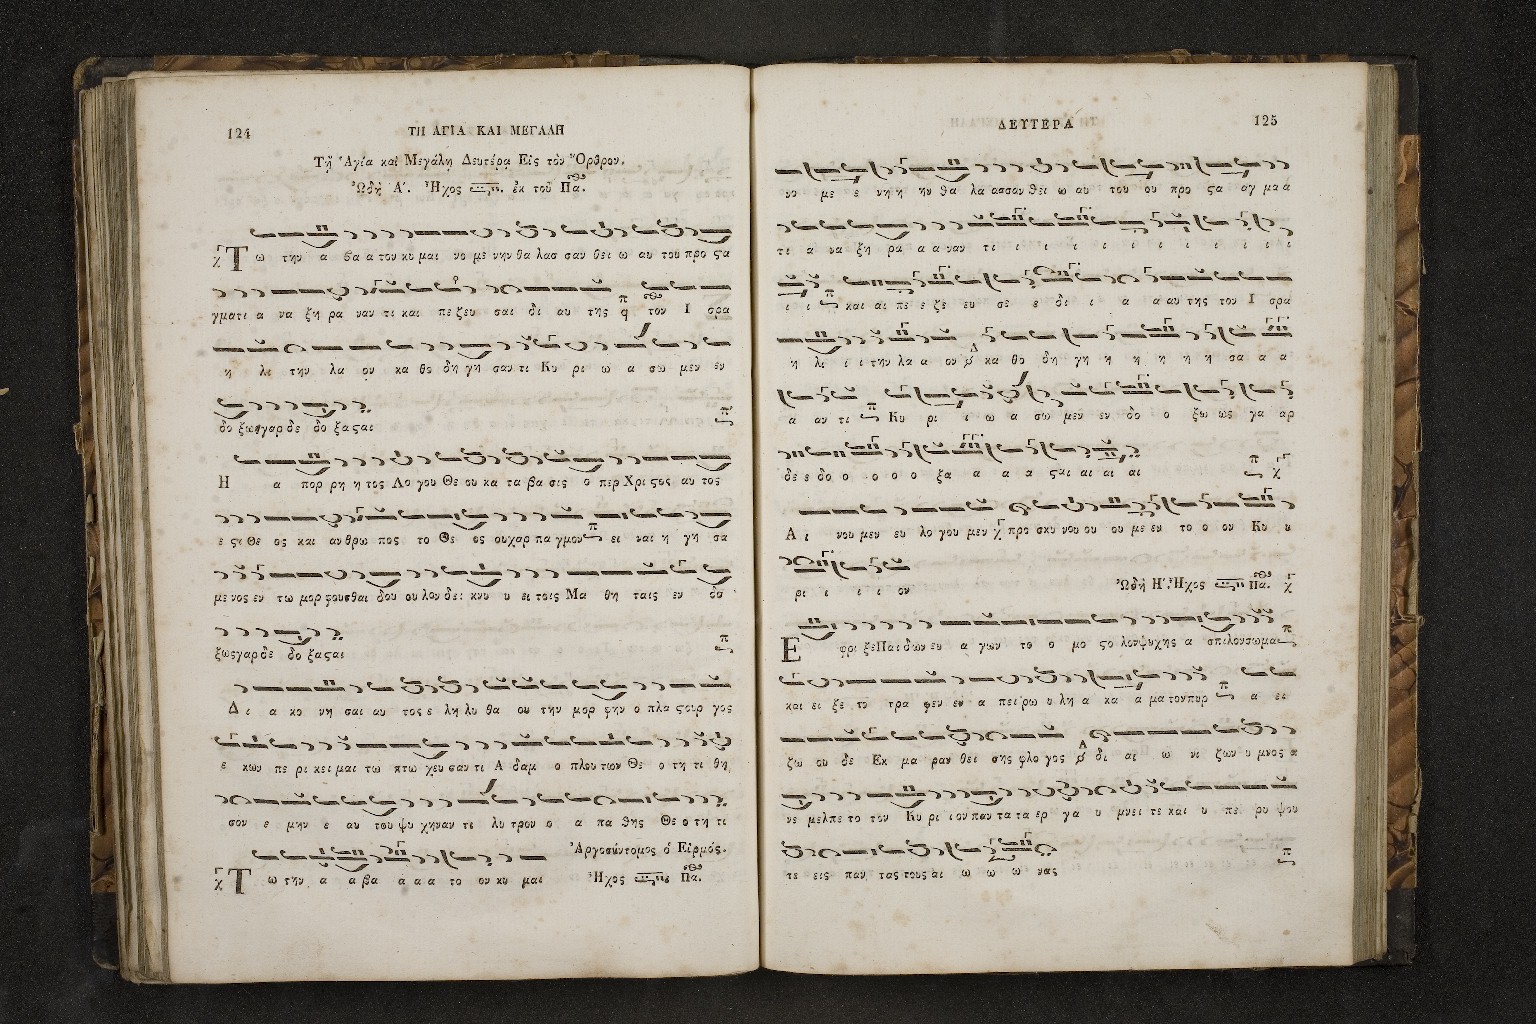 124
ΤΗ ΑΓΙΑ ΚΑΙ ΜΕΓΑΛΗ
Τῇ Ἁγίᾳ καὶ Μεγάλῃ Δευτέρᾳ Εἰς τὸν Ὄρθρον.
ᾨδὴ Α΄. Ἦχος ἐκ τοῦ Πα.
Τ ω την α βα α τον κυ μαι νο με νην θα λασ σαν θει ω αυ του προ ϛα
γματι α να ξη ρα ναν τι και πε ζευ σαι δι αυ της τον Ι σρα
η λι την λα ον κα θο δη γη σαν τι Κυ ρι ω α σω μεν εν
δο ξωςγαρ δε δο ξαϛαι
Η α πορ ρη η τος Λο γου Θε ου κα τα βα σις ο περ Χρι ϛος αυ τος
ε ϛι Θε ος και αν θρω πος το Θε ος ουχ αρ πα γμον ει ναι η γη σα
με νος εν τω μορ φουσθαι δου ου λον δει κνυ υ ει τοις Μα θη ταις εν δο
ξωςγαρ δε δο ξαϛαι
Δ ι α κο νη σαι αυ τος ε λη λυ θα ου την μορ φην ο πλα ϛουρ γος
ε κων πε ρι κει μαι τω πτω χευ σαν τι Α δαμ ο πλου των Θε ο τη τι θη
σον ε μην ε αυ του ψυ χην αν τι λυ τρον ο α πα θης Θε ο τη τι
Ἀργοσύντομος ὁ Εἱρμός.
Τ ω την α α βα α α α το ον κυ μαι Ἦχος Πα.
ΔΕΥΤΕΡΑ
125
νο με ε νη η ην θα λα ασσαν θει ω αυ του ου προ ϛα αγ μα α
τι α να ξη ρα α α ναν τι ι ι ι ι ι ι ι ι ι ι
ι ι και αι πε ε ζε ευ σε ε δι ι α α αυ της τον Ι σρα
η λι ι ι την λα α ον κα θο δη γη η η η η η σα α α
α αν τι Κυ ρι ι ω α σω μεν εν δο ο ξω ως γα αρ
δε ε δο ο ο ο ο ξα α α α ϛαι αι αι αι
Α ι νου μεν ευ λο γου μεν προ σκυ νου ου ου με εν το ο ον Κυ υ
ρι ι ι ι ον ᾨδὴ Η΄. Ἦχος Πα.
Ε φρι ξε Παι δων ευ α γων το ο μο ϛο λον ψυχης α σπιλον σωμα
και ει ξε το τρα φεν εν α πει ρω υ λη α κα α μα τον πυρ α ει
ζω ου δε Εκ μα ραν θει σης φλο γος δι αι ω νι ζων υ μνος α
νε μελπε το τον Κυ ρι ι ον παν τα τα ερ γα υ μνει τε και υ πε ρυ ψου
τε εις παν τας τους αι ω ω ω νας